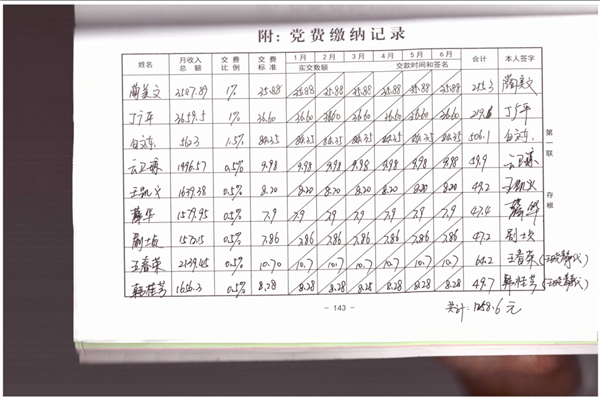 附：党费缴纳记录
姓名 月收入总额 交费比例 交费标准 1月 2月 3月 4月 5月 6月 合计 本人签字
实交数额 交款时间和签名
蔺美文 2587.89 1% 25.88 25.88 25.88 25.88 25.88 25.88 25.88 255.3 蔺美文
丁广平 3659.5 1% 36.60 36.60 36.60 36.60 36.60 36.60 36.60 219.6 丁广平
白文东 5623 1.5% 84.35 84.35 84.35 84.35 84.35 84.35 84.35 506.1 白文东
云卫臻 1996.57 0.5% 9.98 9.98 9.98 9.98 9.98 9.98 9.98 59.9 云卫臻
王凯义 1639.38 0.5% 8.20 8.20 8.20 8.20 8.20 8.20 8.20 49.2 王凯义
薛华 1579.95 0.5% 7.9 7.9 7.9 7.9 7.9 7.9 7.9 47.4 薛华
尉士贞 1572.15 0.5% 7.86 7.86 7.86 7.86 7.86 7.86 7.86 47.2 尉士贞
王春荣 2139.45 0.5% 10.70 10.7 10.7 10.7 10.7 10.7 10.7 64.2 王春荣
韩桂芳 1656.3 0.5% 8.28 8.28 8.28 8.28 8.28 8.28 8.28 49.7 韩桂芳
第一联 存根
- 143 -
共计：1258.6元